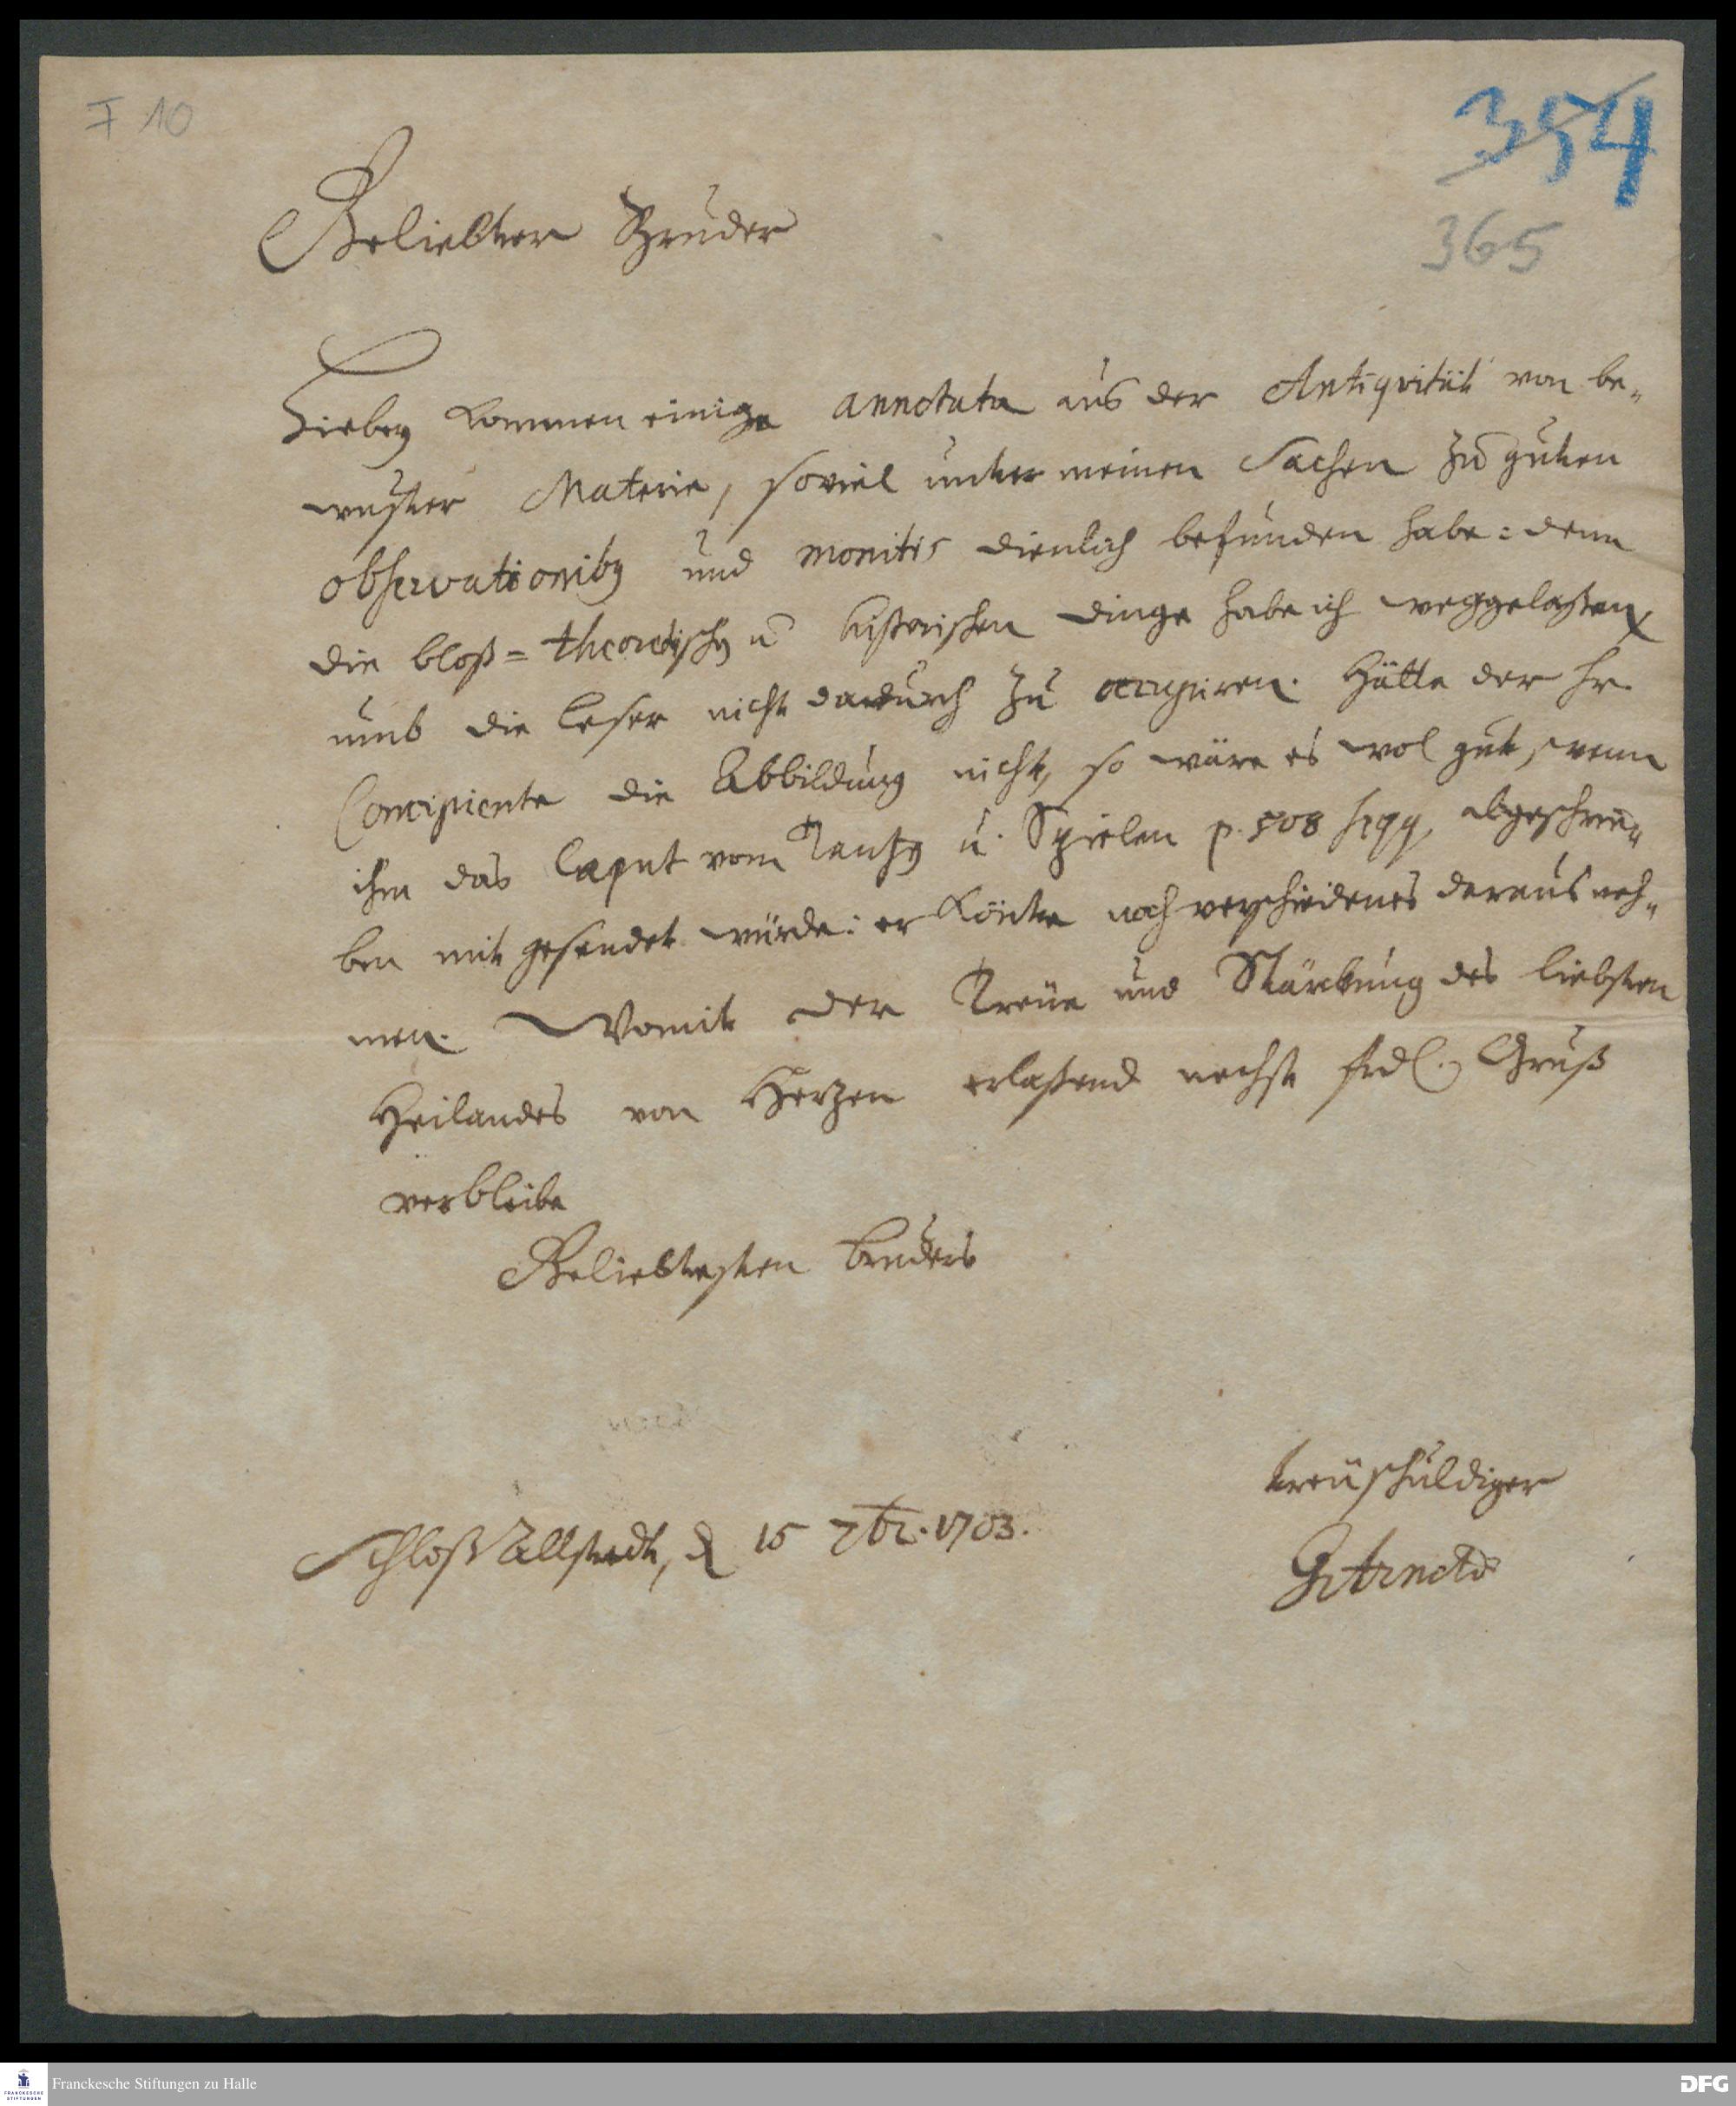 F 10
354
365
Geliebter Bruder
Hierbey kommen einige annotata aus der Antiqvität von be„
wuster Materie, soviel unter meinen Sachen zu guten
observationibꝫ und monitis dienlich befunden habe: denn
die bloß= theoretischen u. historischen Dinge habe ich weggelaßen,
umb die leser nicht dadurch zu occupiren. Hätte der Hr.
Concipiente die Abbildung nicht, so wäre es wol gut, wenn
ihm das Caput vom Tantzen u. Spielen p. 508 seqq. abgeschrie„
ben mit gesendet würde: er könte noch verschiedenes daraus neh„
men. Womit der Treüe und Stärkung des liebsten
Heilandes von Hertzen erlaßend nechst frdl. Gruß
verbleibe
Geliebtesten Bruders
treüschuldiger
Schloß Allstedt, d 15 7br. 1703.
GArnold
Franckesche Stiftungen zu Halle
FRANCKESCHE
STIFTUNGEN
DFG